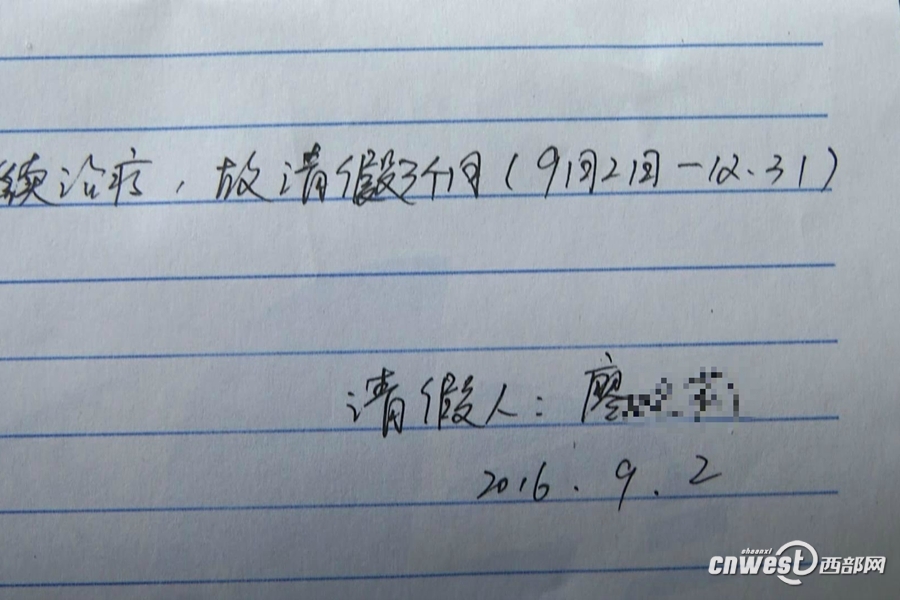 续治疗，故请假3个月(9月2日－12.31)
请假人：廖
2016.9.2
shaanxi
cnwest西部网